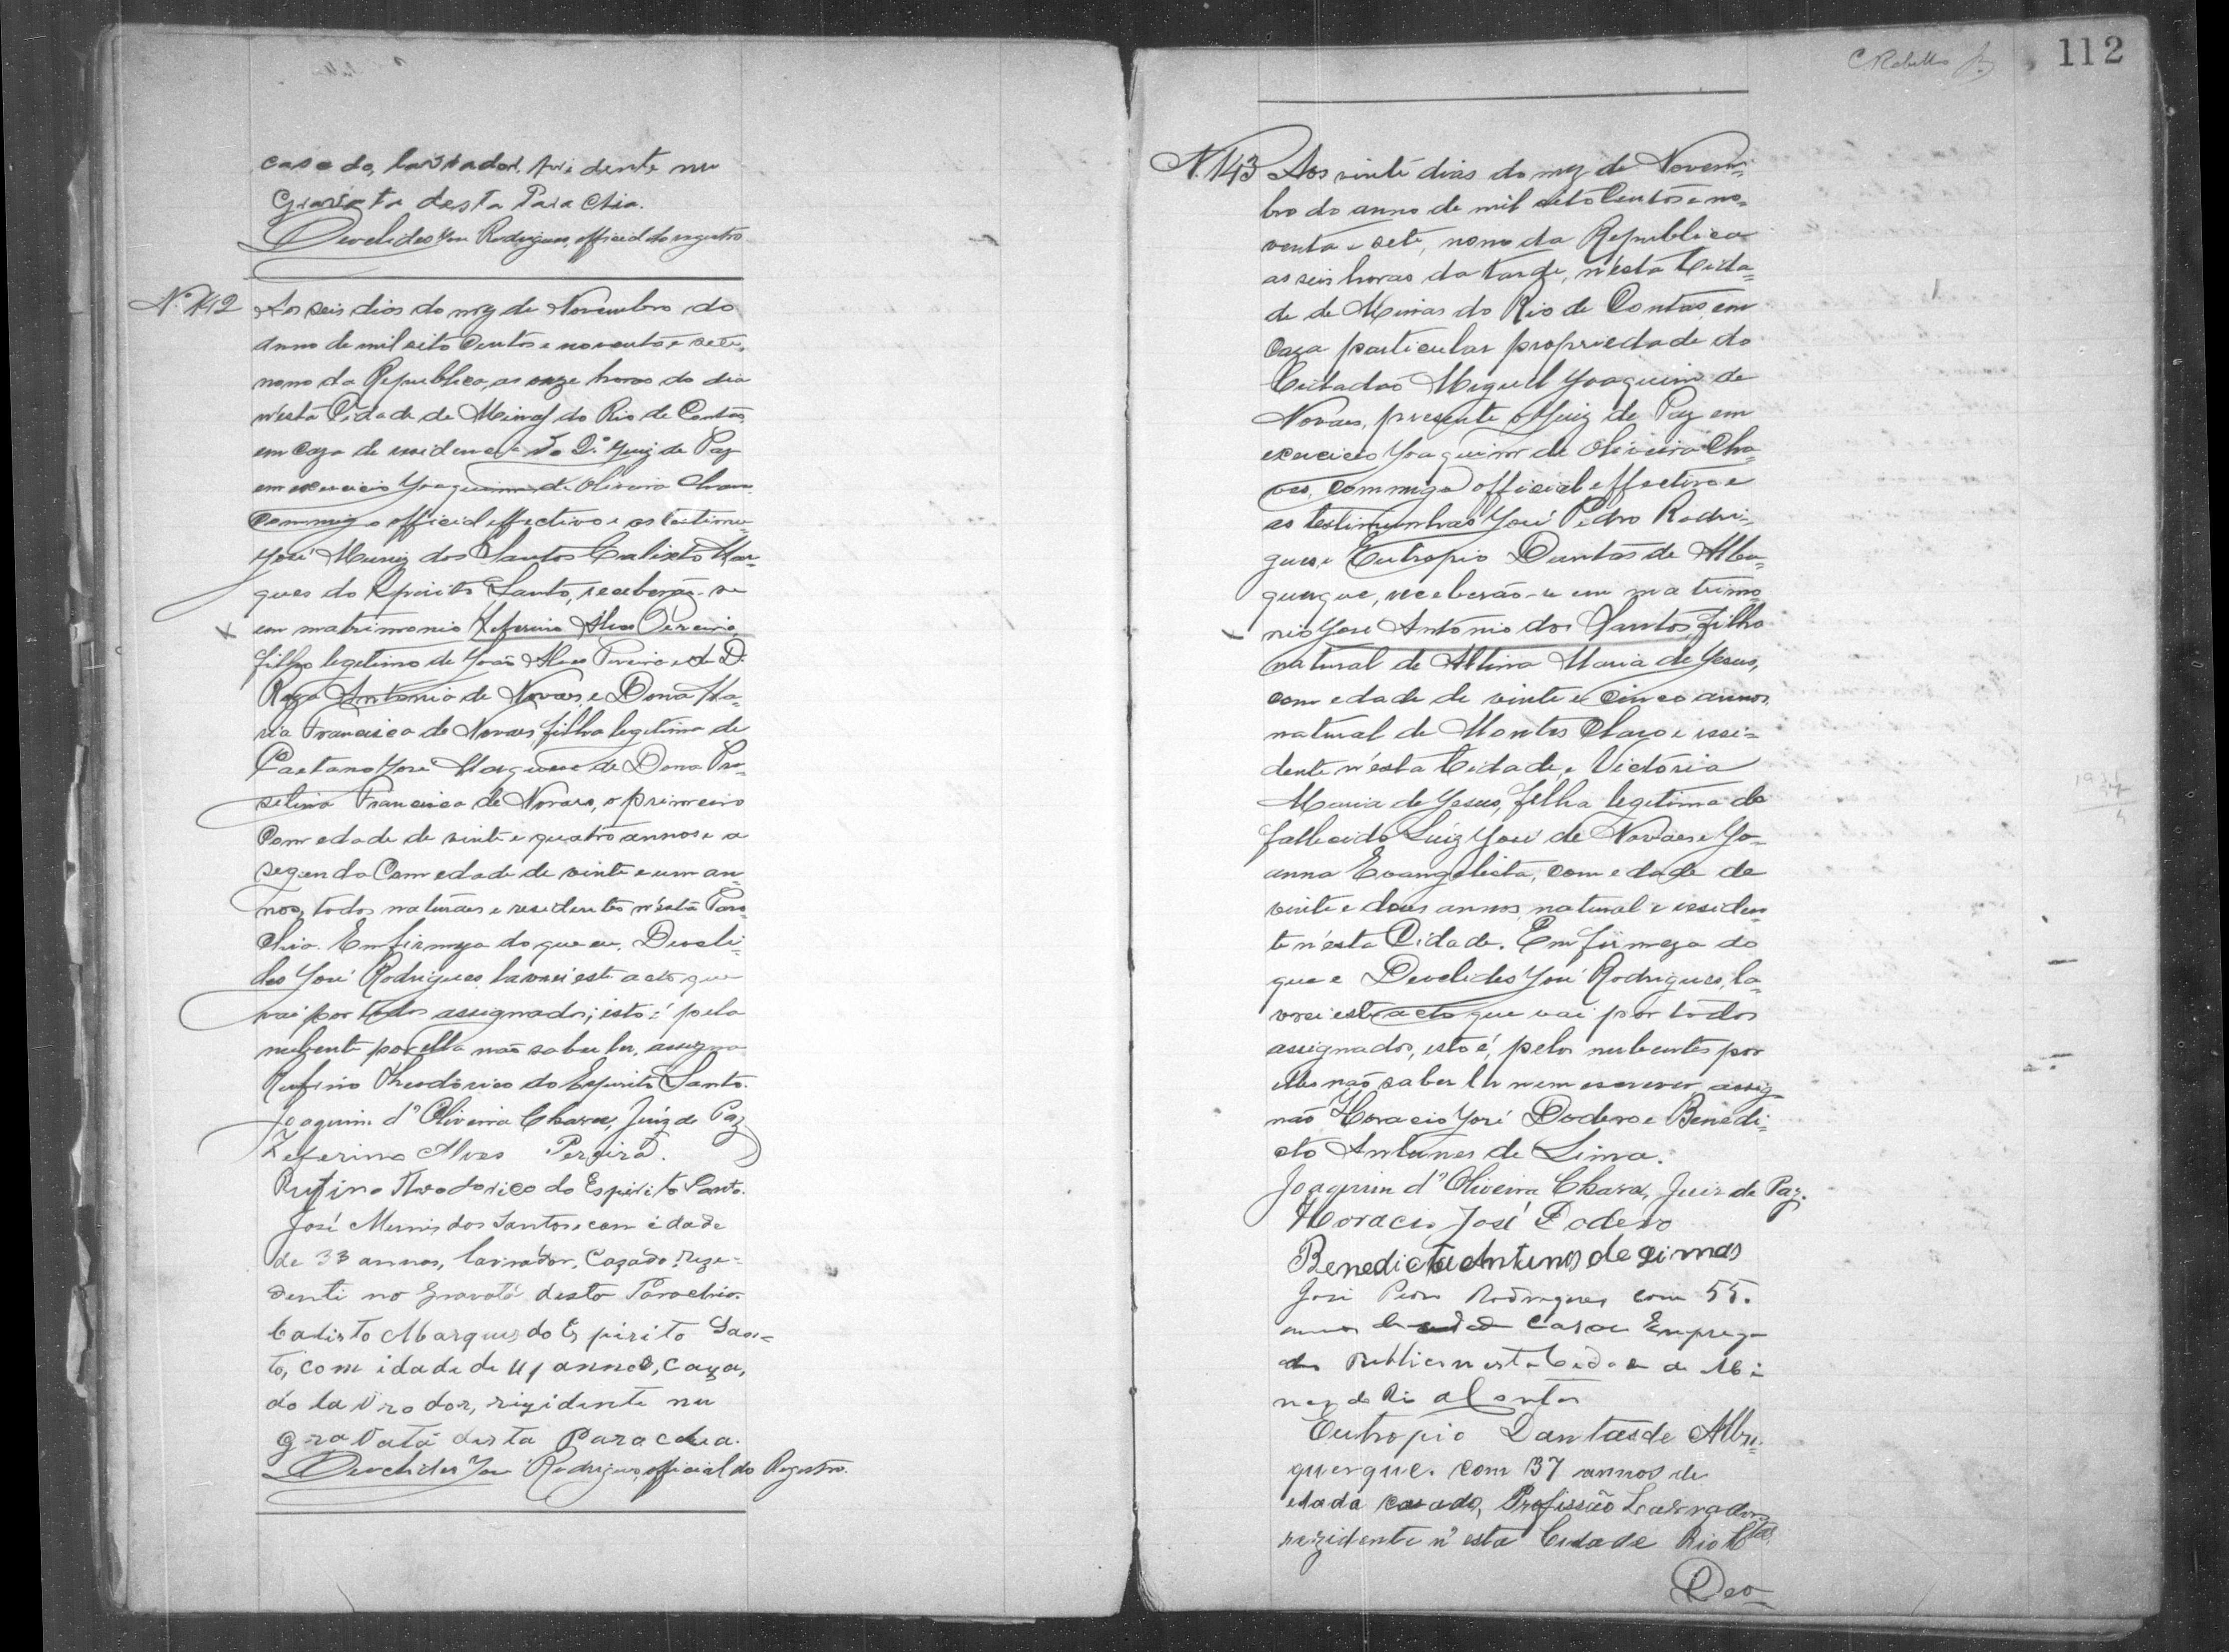 casado, lavrador, rezidente no
Gravata desta Parachia.
Deoclides José Rodrigues, official do registro
N.º 142 Aos seis dias do mez de Novembro do
anno de mil oito centos e noventa e sete,
nono da Republica, as onze horas do dia
n'esta Cidade de Minas do Rio de Contas,
em caza de residencia do 2º Juiz de Paz
em exercicio Joaquim de Oliveira Chaves
commigo official effectivo e as testimu=
José Muniz dos Santos Calixto Mar=
ques do Espirito Santo, receberão-se
em matrimonio Zeferino Alves Pereira,
filho legitimo de João Alves Pereira e de D.
Roza Antonia de Novaes, e Dona Ma=
ria Francisca de Novaes, filha legitima de
Caetano José Marques e de Dona
Francisca de Novaes, o primeiro
com edade de vinte e quatro annos e a
segunda com edade de vinte e um an=
nos, todos naturaes e residentes n'esta Paro=
chia. Em firmeza do que eu, Deocli=
des José Rodrigues, lavrei este acto que
vai por todos assignados, isto é pela
nubente por ella não saber ler, assigna
Rufino Theodorico do Espirito Santo.
Joaquim d'Oliveira Chaves, Juiz de Paz
Zeferino Alves Pereira.
Rufino Theodorico do Espirito Santo.
José Munis dos Santos, com idade
de 33 annos, lavrador, Cazado, reze=
denti no Gravatá desta Parochia.
Calisto Marques do Espirito San=
to, com idade de 41 annos, caza,
do lavrador, rizidente no
gravatá desta Parachia.
Deoclides José Rodrigues, official do Registro.
C Rabello
112
N. 143 Aos vinte dias do mez de Novem=
bro do anno de mil oito centos e no=
venta e sete, nono da Republica
as seis horas da tarde, n'esta Cida=
de de Minas do Rio de Contas, em
caza particular propriedade do
Cidadão Miguel Joaquim de
Novaes, presente o Juiz de Paz em
exercicio Joaquim de Oliveira Cha=
ves, commigo official effectivo e
as testimunhas José Pedro Rodri=
gues, e Eutropio Dantas de Albu=
querque, receberão-se em matrimo=
nio José Antonio dos Santos, filho
natural de Altina Maria de Jesus,
com edade de vinte e cinco annos,
natural de Montes Claro e resi=
dente n'esta Cidade, e Victoria
Maria de Jesus, filha legitima do
fallecido Luiz José de Novaes e Jo=
anna Evangelista, com edade de
vinte e dous annos, natural e residen=
te n'esta Cidade. Em firmeza do
que e Deoclides José Rodrigues, la=
vrei este acto que vai por todos
assignados, isto é, pelos nubentes por
elles não saber ler nem escrever assig=
não Horacio José Dodero e Benedi=
cto Antunes de Lima.
Joaquim d'Oliveira Chaves, Juiz de Paz.
Horacio José Dodero
Benedicto Antunes de Limas
José Pedro Rodrigues com 55.
annos de edade casado Emprega
do Publico nesta Cidade de Mi
nas do Rio de Contas
Eutropio Dantas de Albu=
querque. com 37 annos de
edada casado, Profissão Lavrador
rezidente n'esta Cidade Rio Ctas
Deo=